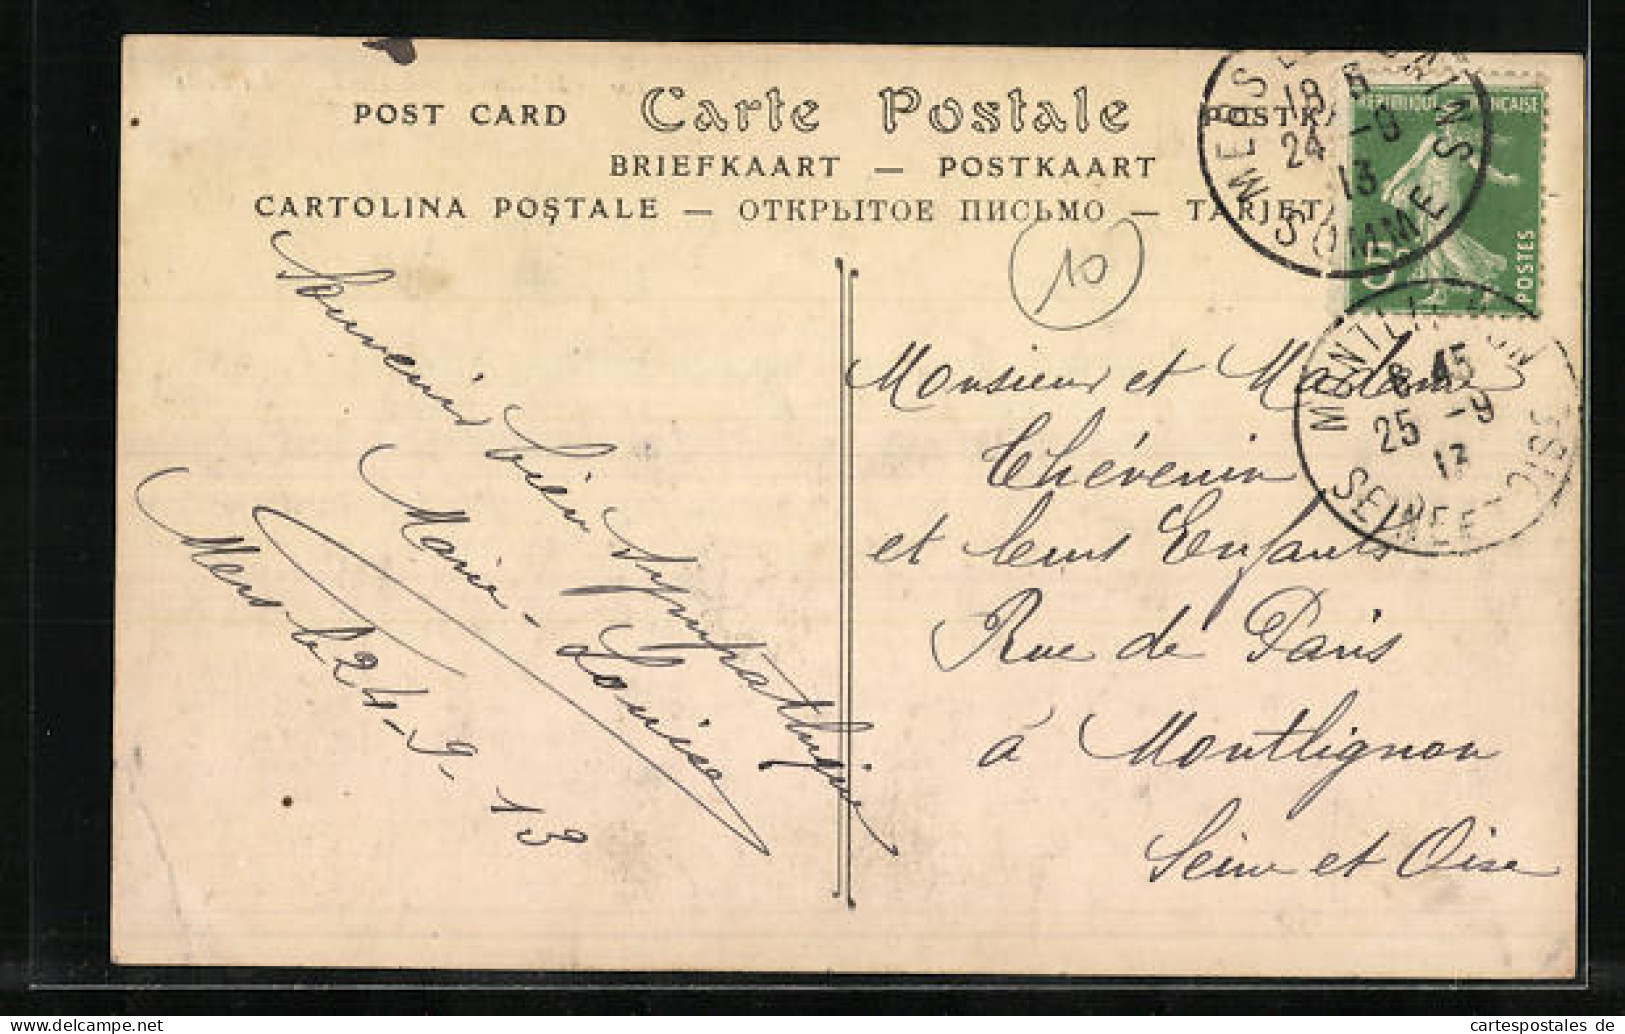 POST CARD Carte Postale POSTK
BRIEFKAART — POSTKAART
CARTOLINA POŞTALE — ОТКРЫТОЕ ПИСЬМО — TARJET
MERS
18
24 -9
13
SOMME
REPUBLIQUE FRANÇAISE
POSTES
5
10
Souvenir bien sympathique
Marie-Louise
Mers le 24-9-13
Monsieur et Madame
Thévenin
et leurs Enfants
Rue de Paris
à Montlignon
Seine et Oise
MONTLIGNON
8 45
25 -9
13
SEINE ET OISE
hipstamp-delcampe.net
cartespostales de